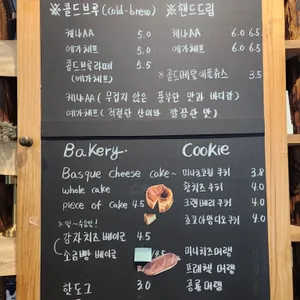 ※콜드브루(cold-brew) ※핸드드립
케냐AA 5.0 케냐AA 6.0 6.5
예가체프 5.0 예가체프 6.0 6.5
콜드브루라떼 5.5
(예가체프) ※콜드메랄 애플쥬스 3.5
케냐AA (무겁지 않은 풍부한 맛과 바디감)
예가체프 (적절한 산미와 깔끔한 맛)
BaKery. Cookie
Basque cheese cake~ 미니초코칩 쿠키 3.8
whole cake 황치즈 쿠키 4.0
piece of cake 4.5 크랜베리 쿠키 4.0
초코아몬드 쿠키 4.0
감자치즈 베이글 4.5
소금빵 베이글 미니치즈머랭
프레첼 머랭
핫도그 3.0 공룡 머랭